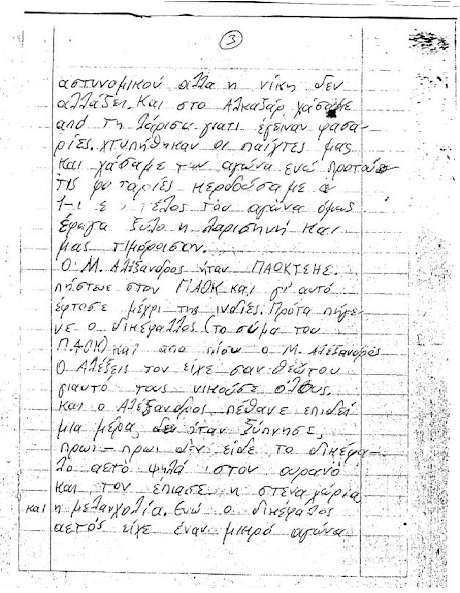 3
αστυνομικού αλλα η νίκη δεν
αλλάζει. Και στο Αλκαζάρ χάσαμε
από τη Λάρισα γιατι έγειναν φασα-
ρίες. χτυπήθηκαν οι παίχτες μας
και χάσαμε τον αγώνα ενώ προτού
τις φασαρίες κερδούσαμε
1-1 ε τέλος του αγώνα όμως
έφαγα ξύλο η λαρισηνή και
μας τιμόρισαν.
Ο Μ. Αλέξανδρος ήταν ΠΑΟΚΤΣΗΣ.
πήστευε στον ΠΑΟΚ και γι' αυτό
έφτασε μέχρι της ινδίες. Πρότα πήγε
νε ο δικέφαλλος (το σύμα του
ΠΑΟΚ) και απο πίσω ο Μ. Αλέξανδρος
Ο Αλέξεις τον είχε σαν θεώ του
γιαυτό τους νικούσε όλους.
και ο Αλέξανδρος πέθανε επιδεί
μια μέρα, όταν ξύπνησε,
πρωι-πρωι δεν είδε το δικέφα-
λο αετό ψηλά στον ουρανό
και τον έπιασε η στεναχώρια
και η μελανχολία. Ενώ ο δικέφαλος
αετός είχε έναν μικρό αγώνα